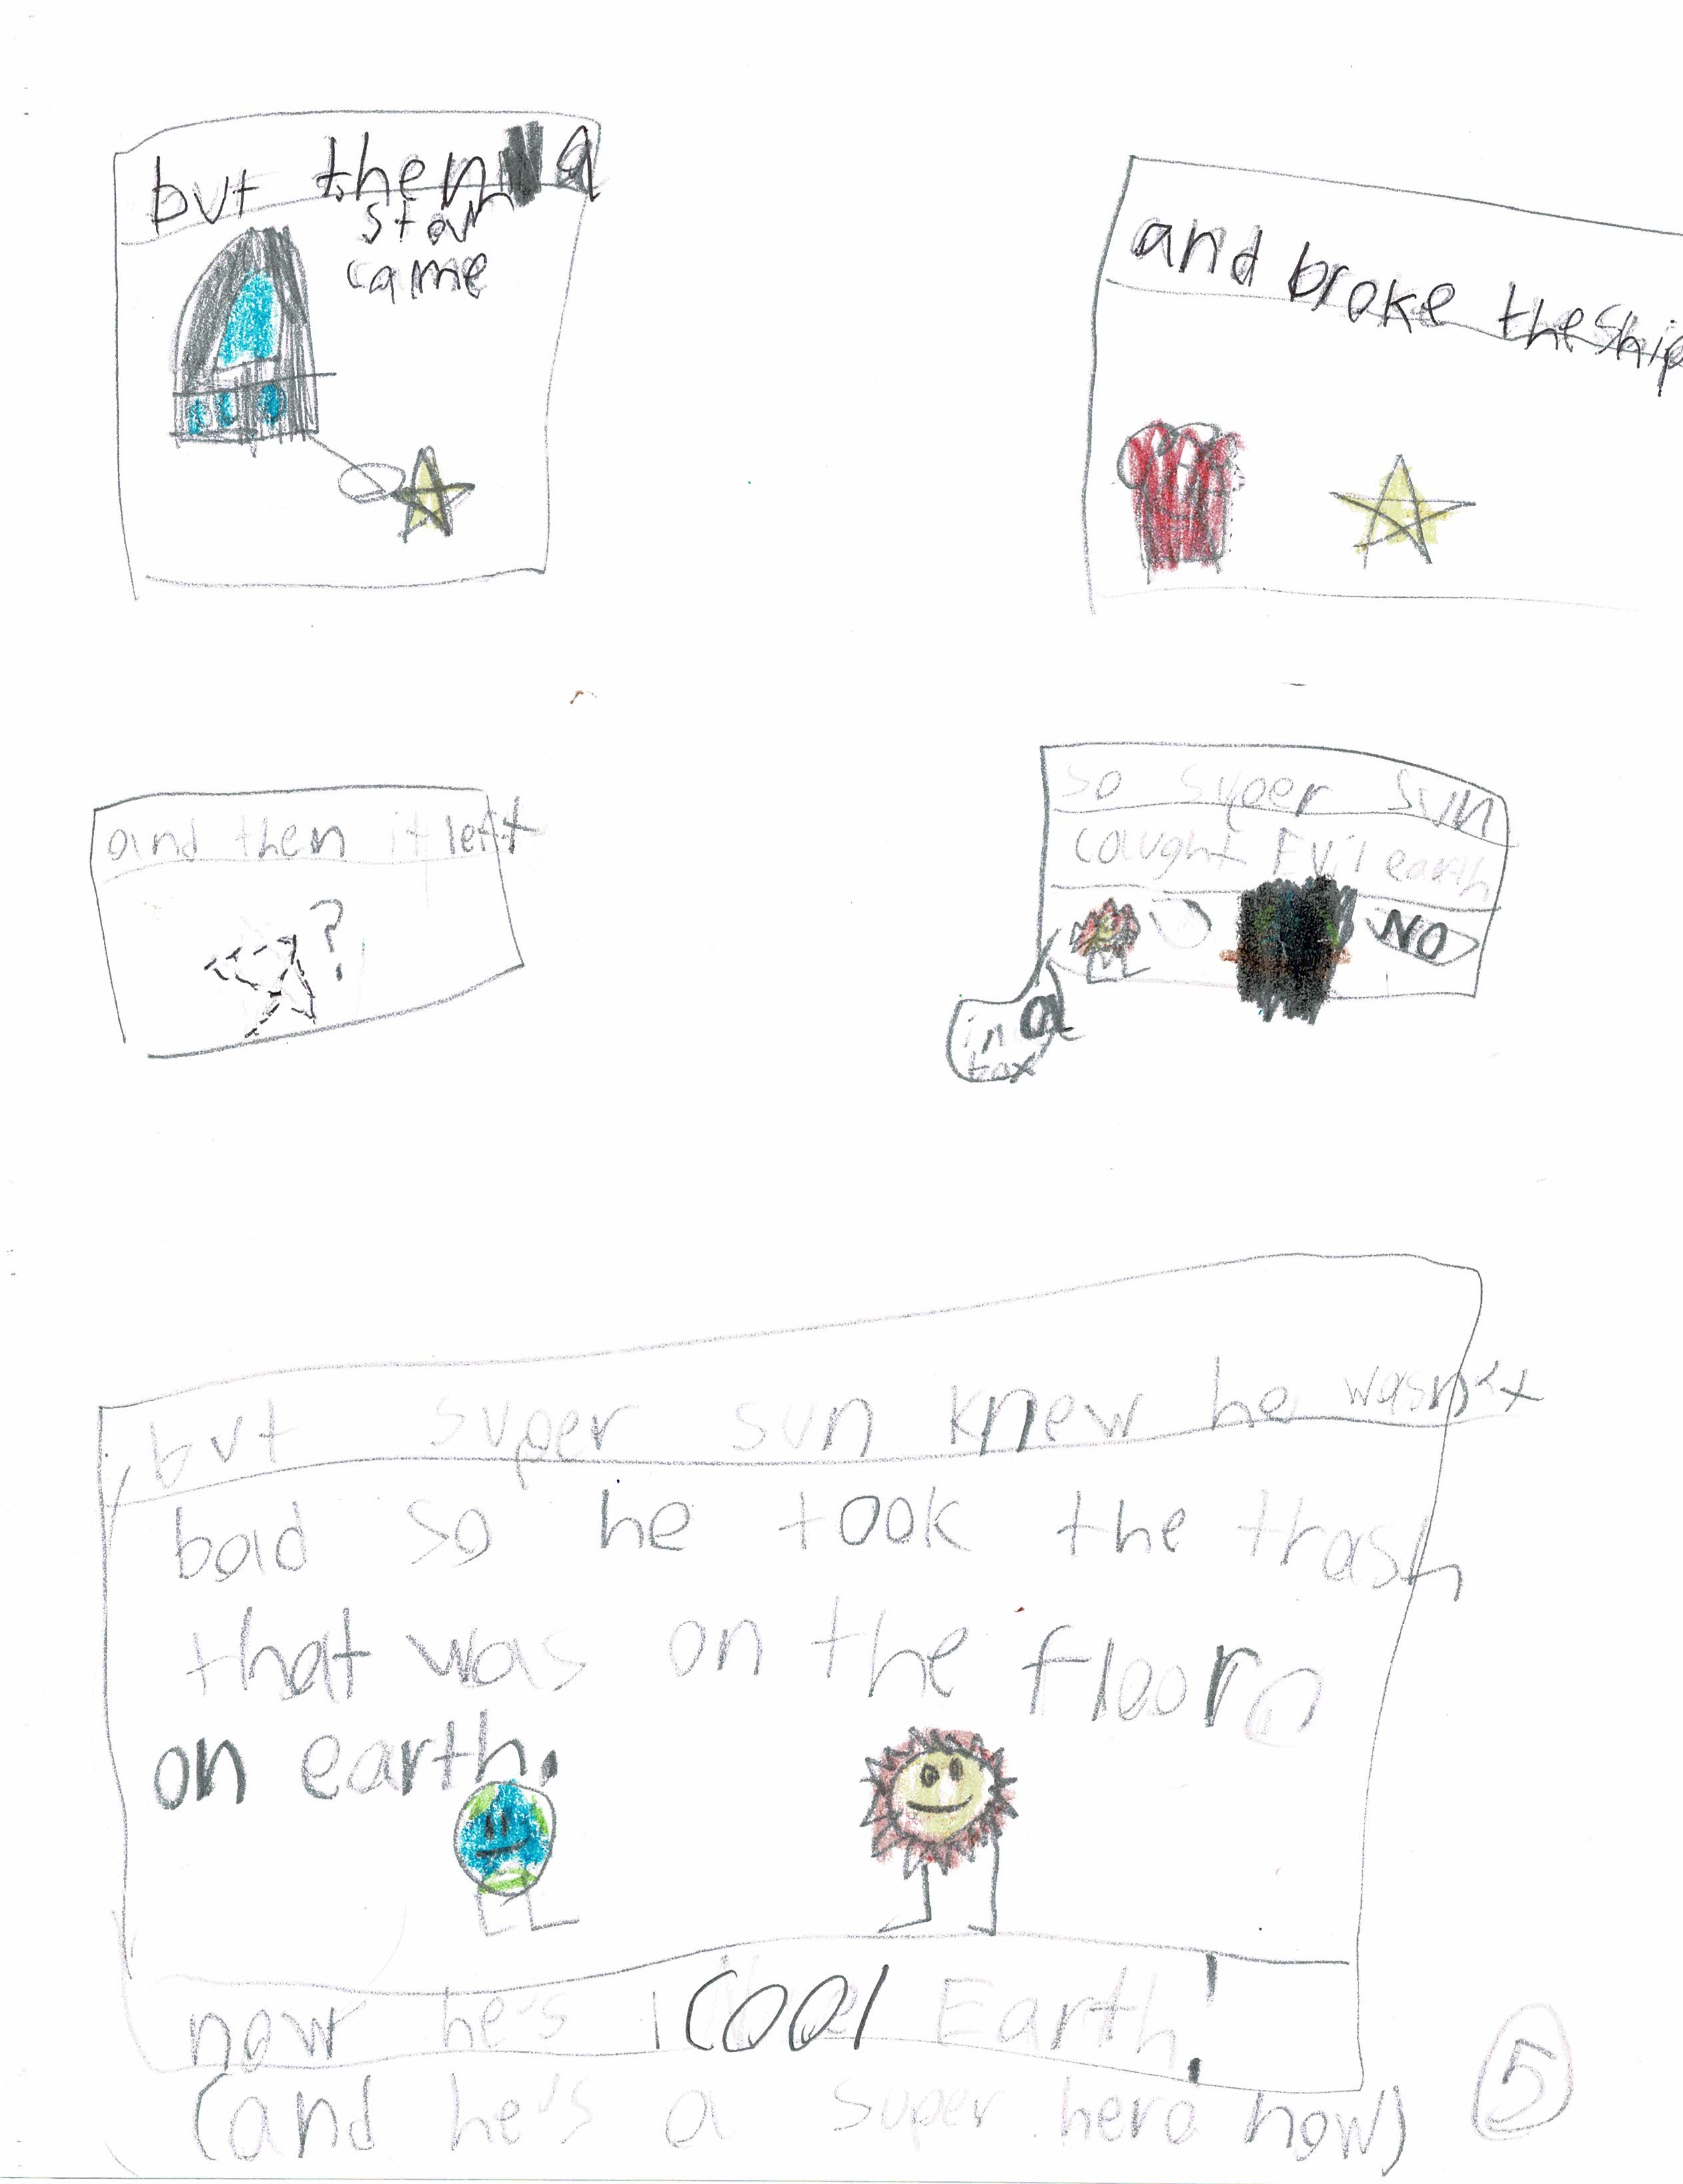 but then a
star
came
and broke the ship
and then it left
?
so super sun
caught Evil earth
NO
in a
box
but super sun knew he wasn't
bad so he took the trash
that was on the floor
on earth.
now he's cool Earth!
(and he's a super hero now)
5